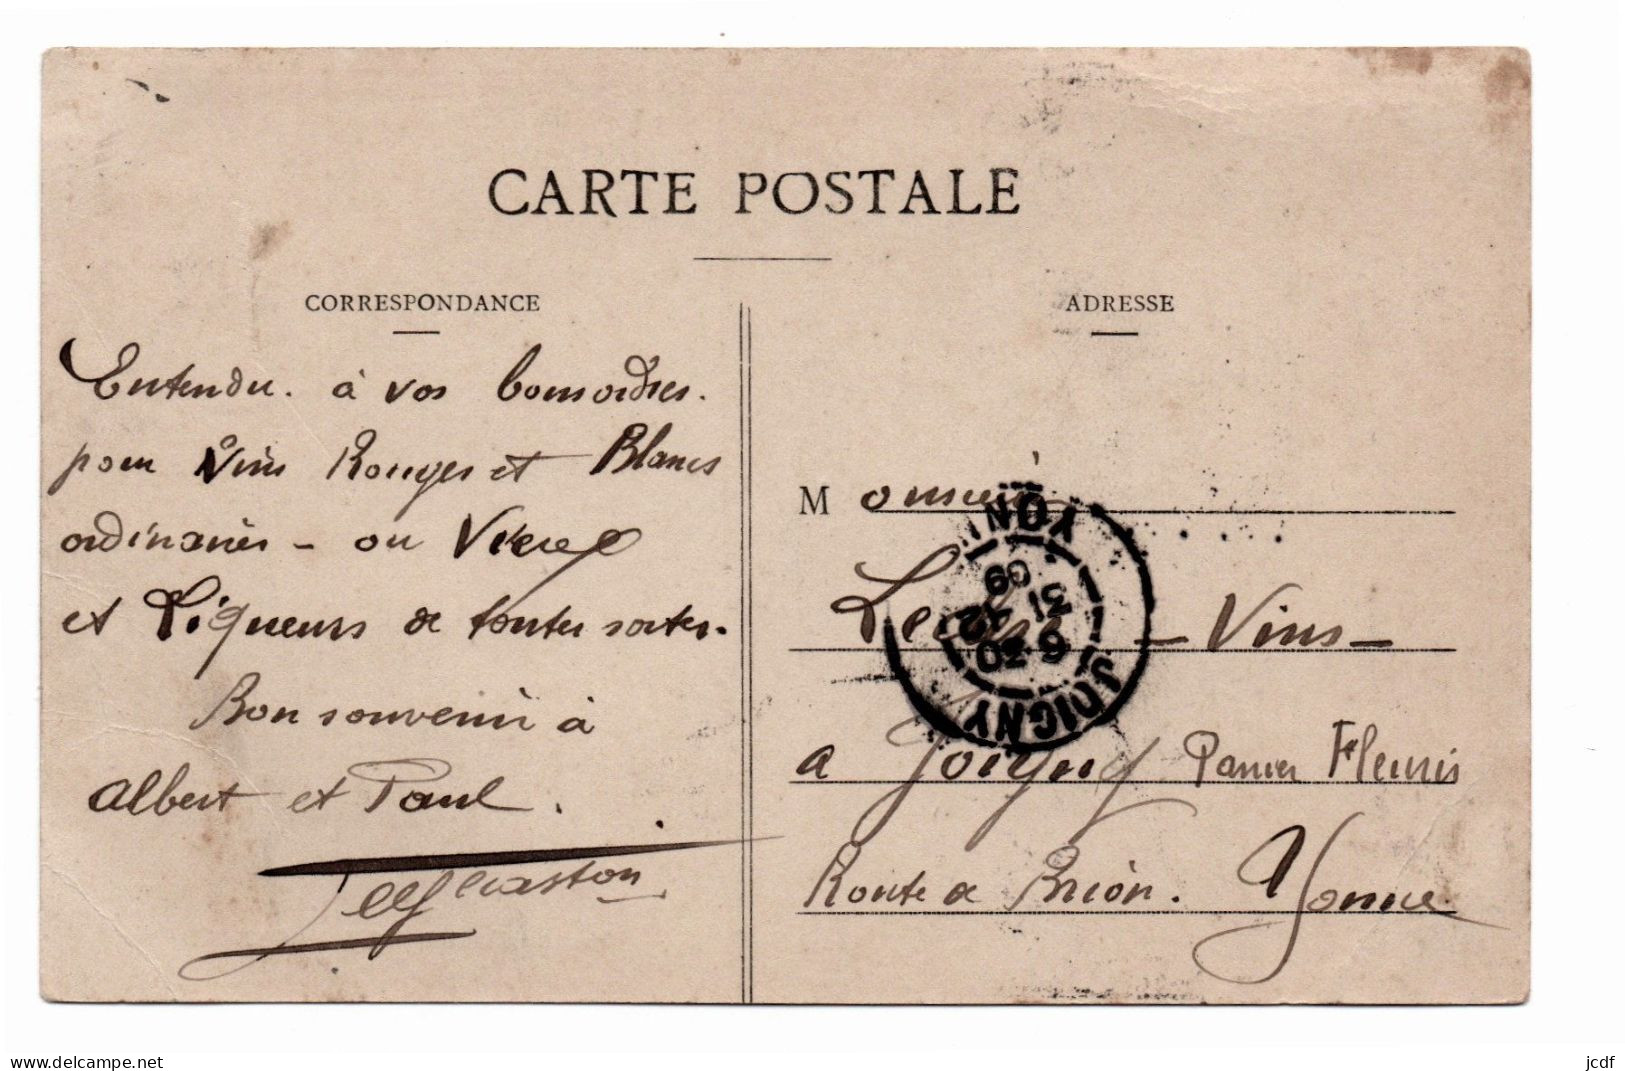 CARTE POSTALE
CORRESPONDANCE
Entendu. à vos bons ordres.
pour Vins Rouges et Blancs
ordinaires - ou Vieux
et Liqueurs de toutes sortes.
Bon souvenir à
Albert et Paul.
Gaston
ADRESSE
Monsieur
- Vins -
a Joigny Panier Fleuris
Route de Brion. Yonne
JOIGNY YONNE
6 20
31 12
09
www.delcampe.net
jcdf